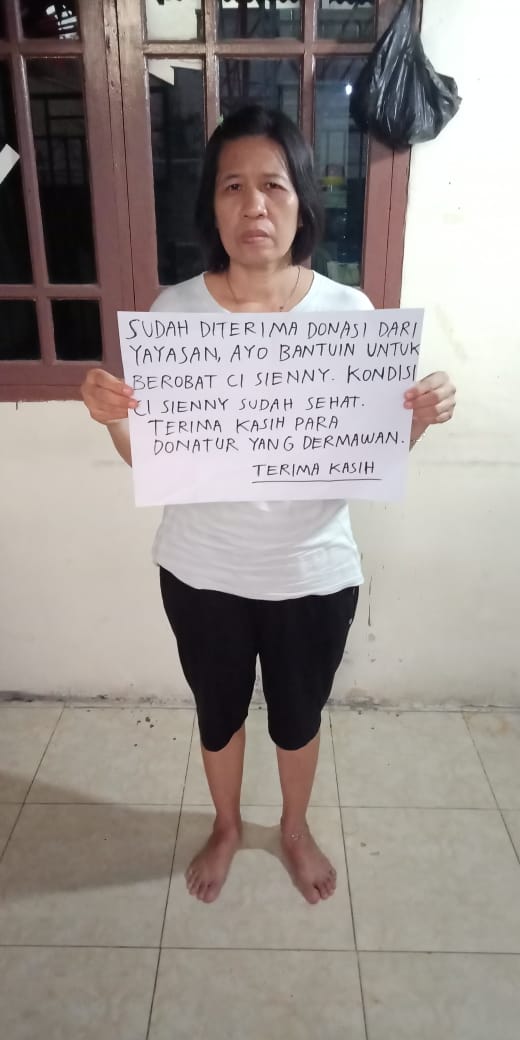 SUDAH DITERIMA DONASI DARI
YAYASAN, AYO BANTUIN UNTUK
BEROBAT CI SIENNY. KONDISI
CI SIENNY SUDAH SEHAT.
TERIMA KASIH PARA
DONATUR YANG DERMAWAN.
TERIMA KASIH